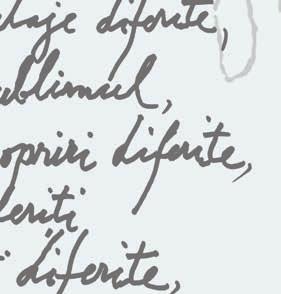 laje diferite,
ublimul,
opriri diferite,
feriti
i diferite,